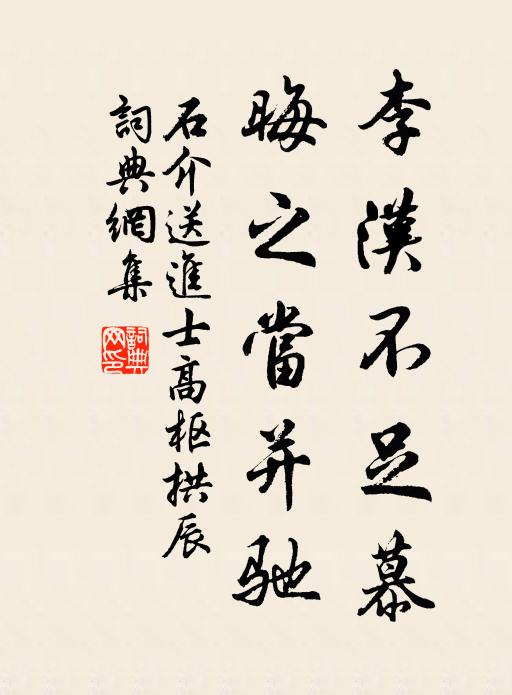 李漢不足慕
晦之當并馳
石介送進士高枢拱辰
詞典網集
詞典網印